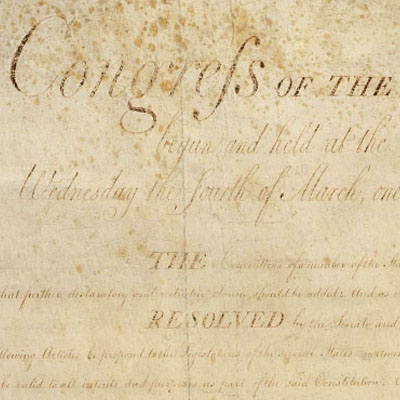 Congreſs OF THE
begun and held at the
Wednesday the fourth of March, one
THE Conventions of a number of the Sta
that further declaratory and restrictive clauses should be added: And as e
RESOLVED by the Senate and
ollowing Articles be proposed to the Legislatures of the several States
be valid to all intents and purposes as part of the said Constitution.